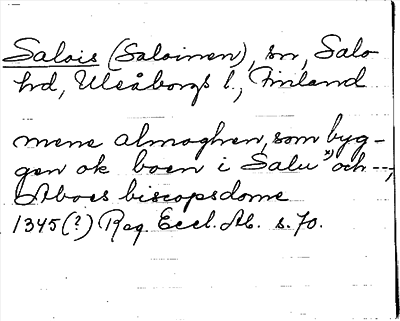 Salois (Saloinen), sn, Salo
hd, Uleåborgs l., Finland
mene almoghen, som byg-
gen ok boen i Salu x) och --,
Aboes biscopsdome
1345(?) Reg. Eccl. Ab. s. 70.